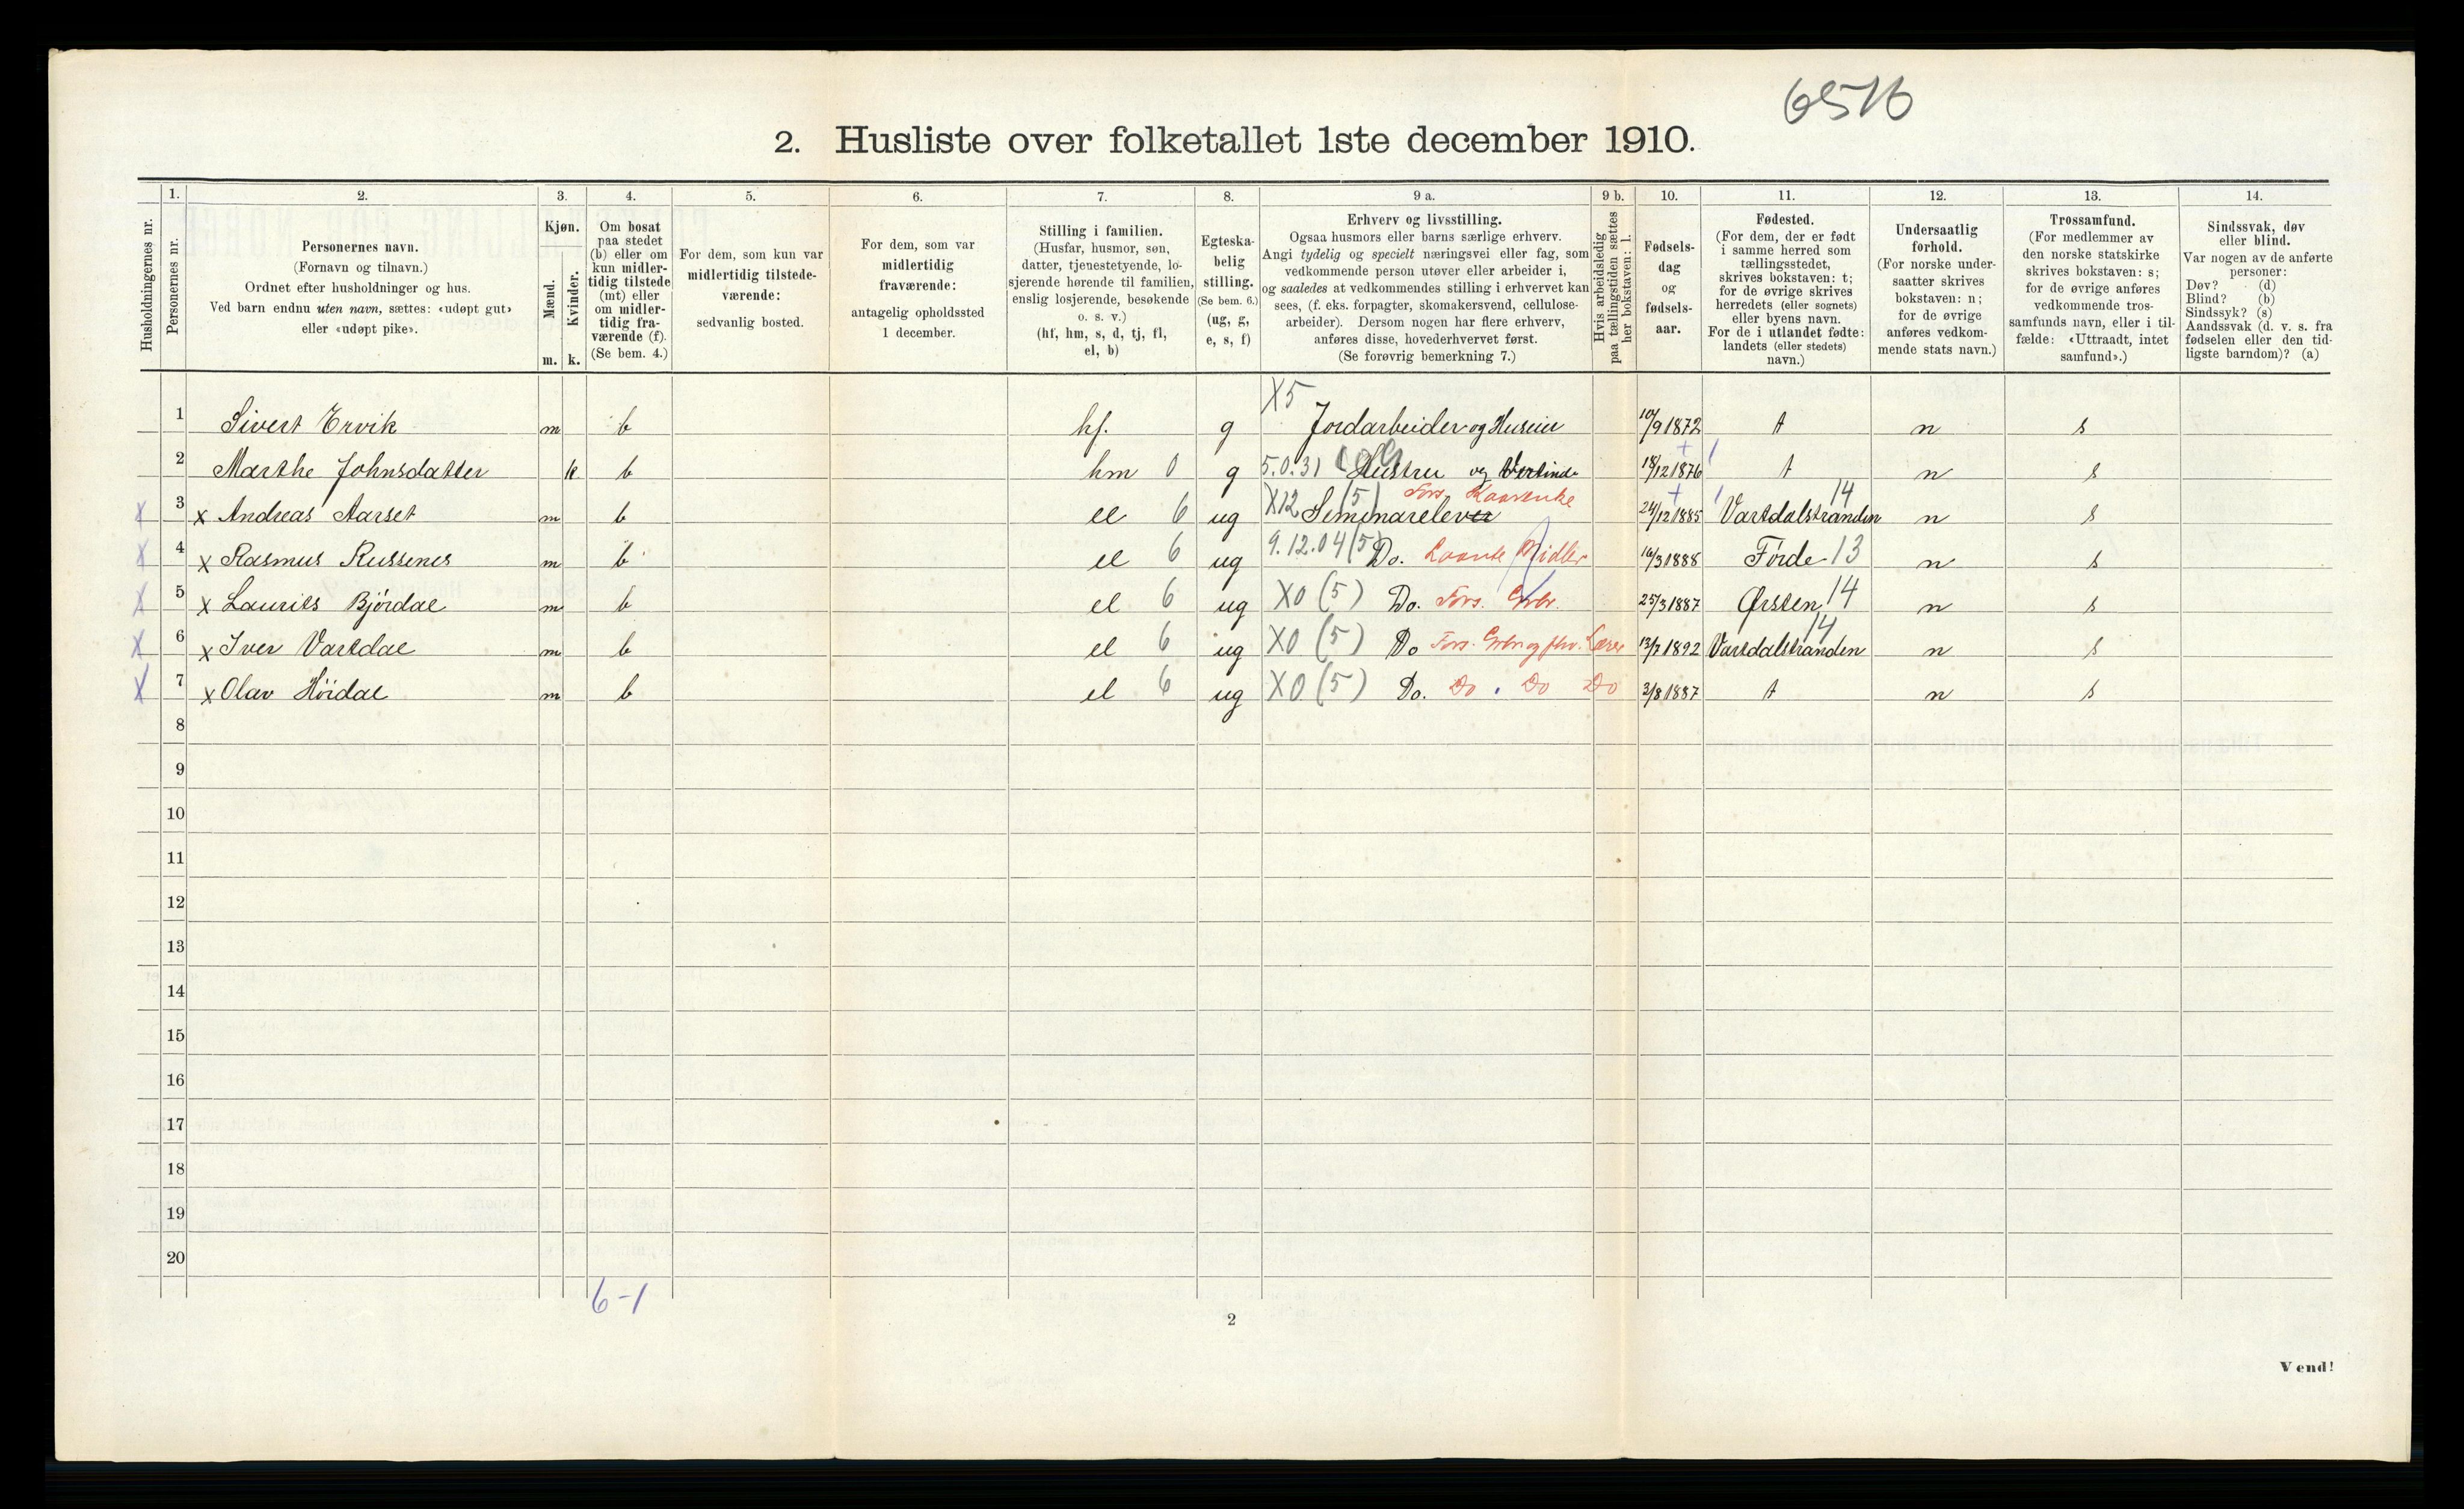 6516
2. Husliste over folketallet 1ste december 1910.
Husholdningernes nr.
1.
Personernes nr.
2.
Personernes navn.
(Fornavn og tilnavn.)
Ordnet efter husholdninger og hus.
Ved barn endnu uten navn, sættes: «udøpt gut»
eller «udøpt pike».
3.
Kjøn.
Mænd.
Kvinder.
m. k.
4.
Om bosat
paa stedet
(b) eller om
kun midler-
tidig tilstede
(mt) eller
om midler-
tidig fra-
værende (f).
(Se bem. 4.)
5.
For dem, som kun var
midlertidig tilstede-
værende:
sedvanlig bosted.
6.
For dem, som var
midlertidig
fraværende:
antagelig opholdssted
1 december.
7.
Stilling i familien.
(Husfar, husmor, søn,
datter, tjenestetyende, lo-
sjerende hørende til familien,
enslig losjerende, besøkende
o. s. v.)
(hf, hm, s, d, tj, fl,
el, b)
8.
Egteska-
belig
stilling.
(Se bem. 6.)
(ug, g,
e, s, f)
9 a.
Erhverv og livsstilling.
Ogsaa husmors eller barns særlige erhverv.
Angi tydelig og specielt næringsvei eller fag, som
vedkommende person utøver eller arbeider i,
og saaledes at vedkommendes stilling i erhvervet kan
sees, (f. eks. forpagter, skomakersvend, cellulose-
arbeider). Dersom nogen har flere erhverv,
anføres disse, hovederhvervet først.
(Se forøvrig bemerkning 7.)
9 b.
Hvis arbeidsledig
paa tællingstiden sættes
her bokstaven: l.
10.
Fødsels-
dag
og
fødsels-
aar.
11.
Fødested.
(For dem, der er født
i samme herred som
tællingsstedet,
skrives bokstaven: t;
for de øvrige skrives
herredets (eller sognets)
eller byens navn.
For de i utlandet fødte:
landets (eller stedets)
navn.)
12.
Undersaatlig
forhold.
(For norske under-
saatter skrives
bokstaven: n;
for de øvrige
anføres vedkom-
mende stats navn.)
13.
Trossamfund.
(For medlemmer av
den norske statskirke
skrives bokstaven: s;
for de øvrige anføres
vedkommende tros-
samfunds navn, eller i til-
fælde: «Uttraadt, intet
samfund».)
14.
Sindssvak, døv
eller blind.
Var nogen av de anførte
personer:
Døv? (d)
Blind? (b)
Sindssyk? (s)
Aandssvak (d. v. s. fra
fødselen eller den tid-
ligste barndom)? (a)
X5
1 Sivert Ervik m b hf. g Jordarbeider og Huseier 10/9 1872 t n s
2 Marthe Johnsdatter k b hm 0 g 5.0.31 Hustru og 18/12 1876 t n s
X 3 x Andreas Aarset m b el 6 ug X12 Seminarelever (5) Fors. 24/12 1885 Vartdalstranden 14 n s
X 4 x Rasmus Russenes m b el 6 ug 9.12.04 (5) Do. Laante Midler 16/3 1888 Førde 13 n s
X 5 x Laurits Bjørdal m b el 6 ug X0 (5) Do. Fors. 25/3 1887 Ørsten 14 n s
X 6 x Iver Vartdal m b el 6 ug X0 (5) Do Fors. 13/7 1892 Vartdalstranden 14 n s
X 7 x Olav Høidal m b el 6 ug X0 (5) Do. Do . Do Do 3/8 1887 t n s
8
9
10
11
12
13
14
15
16
17
18
19
20
6-1
2
Vend!